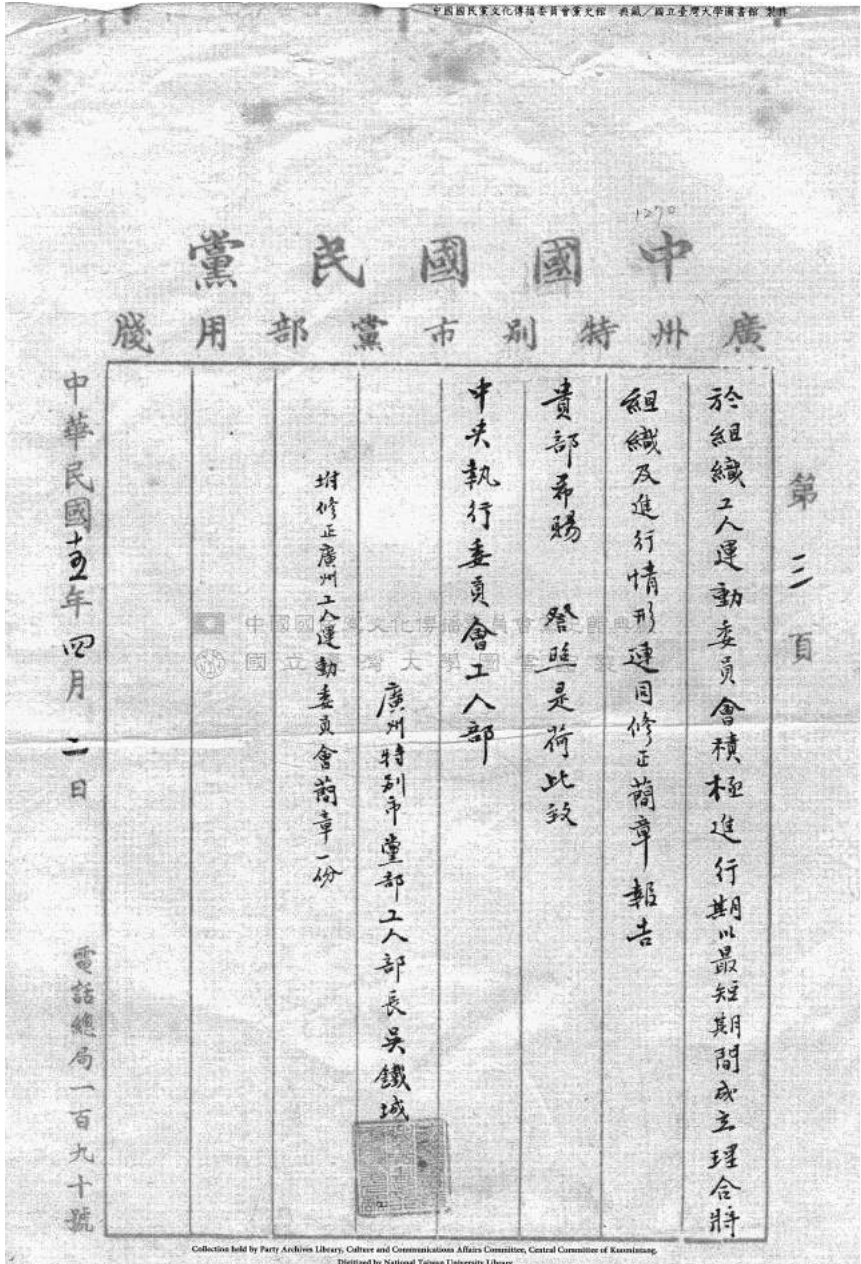 中國國民黨文化傳播委員會黨史館 典藏/國立臺灣大學圖書館 製作
1270
中國國民黨
廣州特別市黨部用牋
第三頁
於組織工人運動委員會積極進行期以最短期間成立理合將
組織及進行情形連同修正簡章報告
貴部希賜 詧照是荷此致
中央執行委員會工人部
廣州特別市黨部工人部長吳鐵城
坿修正廣州工人運動委員會簡章一份
中華民國十五年四月二日
電話總局一百九十號
Collection held by Party Archives Library, Culture and Communications Affairs Committee, Central Committee of Kuomintang.
Digitized by National Taiwan University Library